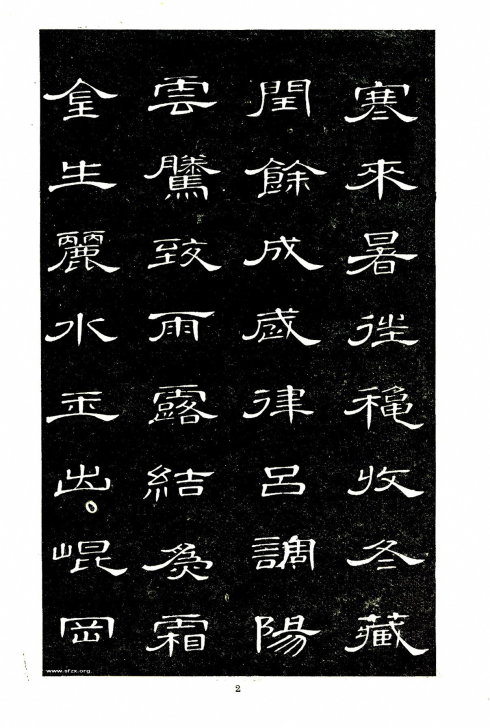 寒來暑往穐收冬藏
閏餘成歲律呂調陽
雲騰致雨露結為霜
金生麗水玉出崐岡
www.sfzx.org
2